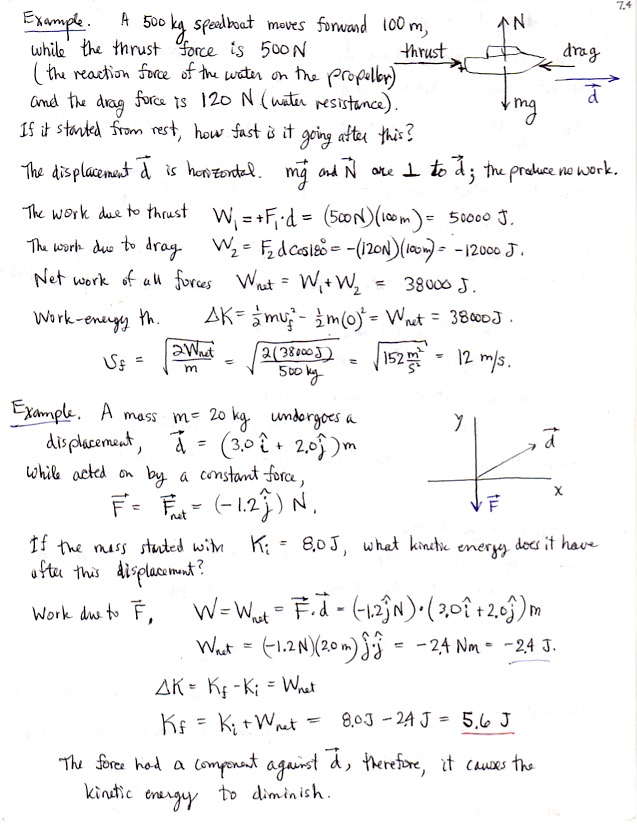 7.4
Example. A 500 kg speedboat moves forward 100 m,
while the thrust force is 500 N
(the reaction force of the water on the propeller)
and the drag force is 120 N (water resistance).
N
thrust
drag
d⃗
mg
If it started from rest, how fast is it going after this?
The displacement d⃗ is horizontal. mg⃗ and N⃗ are ⊥ to d⃗; the produce no work.
The work due to thrust W₁ = +F₁·d = (500N)(100m) = 50000 J.
The work due to drag W₂ = F₂ d cos180° = -(120N)(100m) = -12000 J.
Net work of all forces Wnet = W₁ + W₂ = 38000 J.
Work-energy th. ΔK = ½mv_f² - ½m(0)² = Wnet = 38000J.
v_f = √(2Wnet/m) = √(2(38000J)/500 kg) = √(152 m²/s²) = 12 m/s.
Example. A mass m = 20 kg undergoes a
displacement, d⃗ = (3.0 î + 2.0 ĵ) m
while acted on by a constant force,
F⃗ = F⃗net = (-1.2 ĵ) N.
y
d⃗
x
F⃗
If the mass started with Ki = 8.0 J, what kinetic energy does it have
after this displacement?
Work due to F⃗, W = Wnet = F⃗·d⃗ = (-1.2 ĵ N)·(3.0 î + 2.0 ĵ) m
Wnet = (-1.2 N)(2.0 m) ĵ·ĵ = -2.4 Nm = -2.4 J.
ΔK = Kf - Ki = Wnet
Kf = Ki + Wnet = 8.0J - 2.4 J = 5.6 J
The force had a component against d⃗, therefore, it causes the
kinetic energy to diminish.